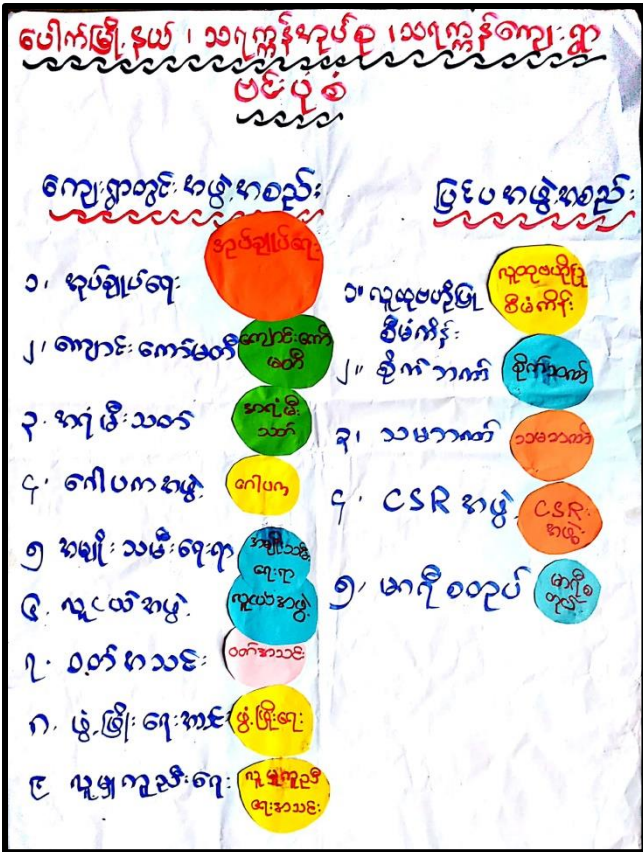 ပေါက်မြို့နယ် ၊ သရက္ကန်အုပ်စု ၊ သရက္ကန်ကျေးရွာ
ဗင်းပုံစံ
ကျေးရွာတွင်းအဖွဲ့အစည်း
၁၊ အုပ်ချုပ်ရေး
အုပ်ချုပ်ရေး
၂၊ ကျောင်းကော်မတီ
ကျောင်းကော်
မတီ
၃. အရံမီးသတ်
အရံမီး
သတ်
၄. ဂေါပကအဖွဲ့
ဂေါပက
၅ အမျိုးသမီးရေးရာ
အမျိုးသမီး
ရေးရာ
၆. လူငယ်အဖွဲ့
လူငယ်အဖွဲ့
၇. ဝတ်အသင်း
ဝတ်အသင်း
၈. ဖွံ့ဖြိုးရေးအသင်း
ဖွံ့ဖြိုးရေး
၉ လူမှုကူညီရေး
လူမှုကူညီ
ရေးအသင်း
ပြင်ပအဖွဲ့အစည်း
၁" လူထုဗဟိုပြု
စီမံကိန်း
လူထုဗဟိုပြု
စီမံကိန်း
၂" စိုက်ဘဏ်
စိုက်ဘဏ်
၃၊ သမဘဏ်
သမဘဏ်
၄. CSR အဖွဲ့
CSR
အဖွဲ့
၅၊ မာရီစတုပ်
မာရီစ
တုပ်